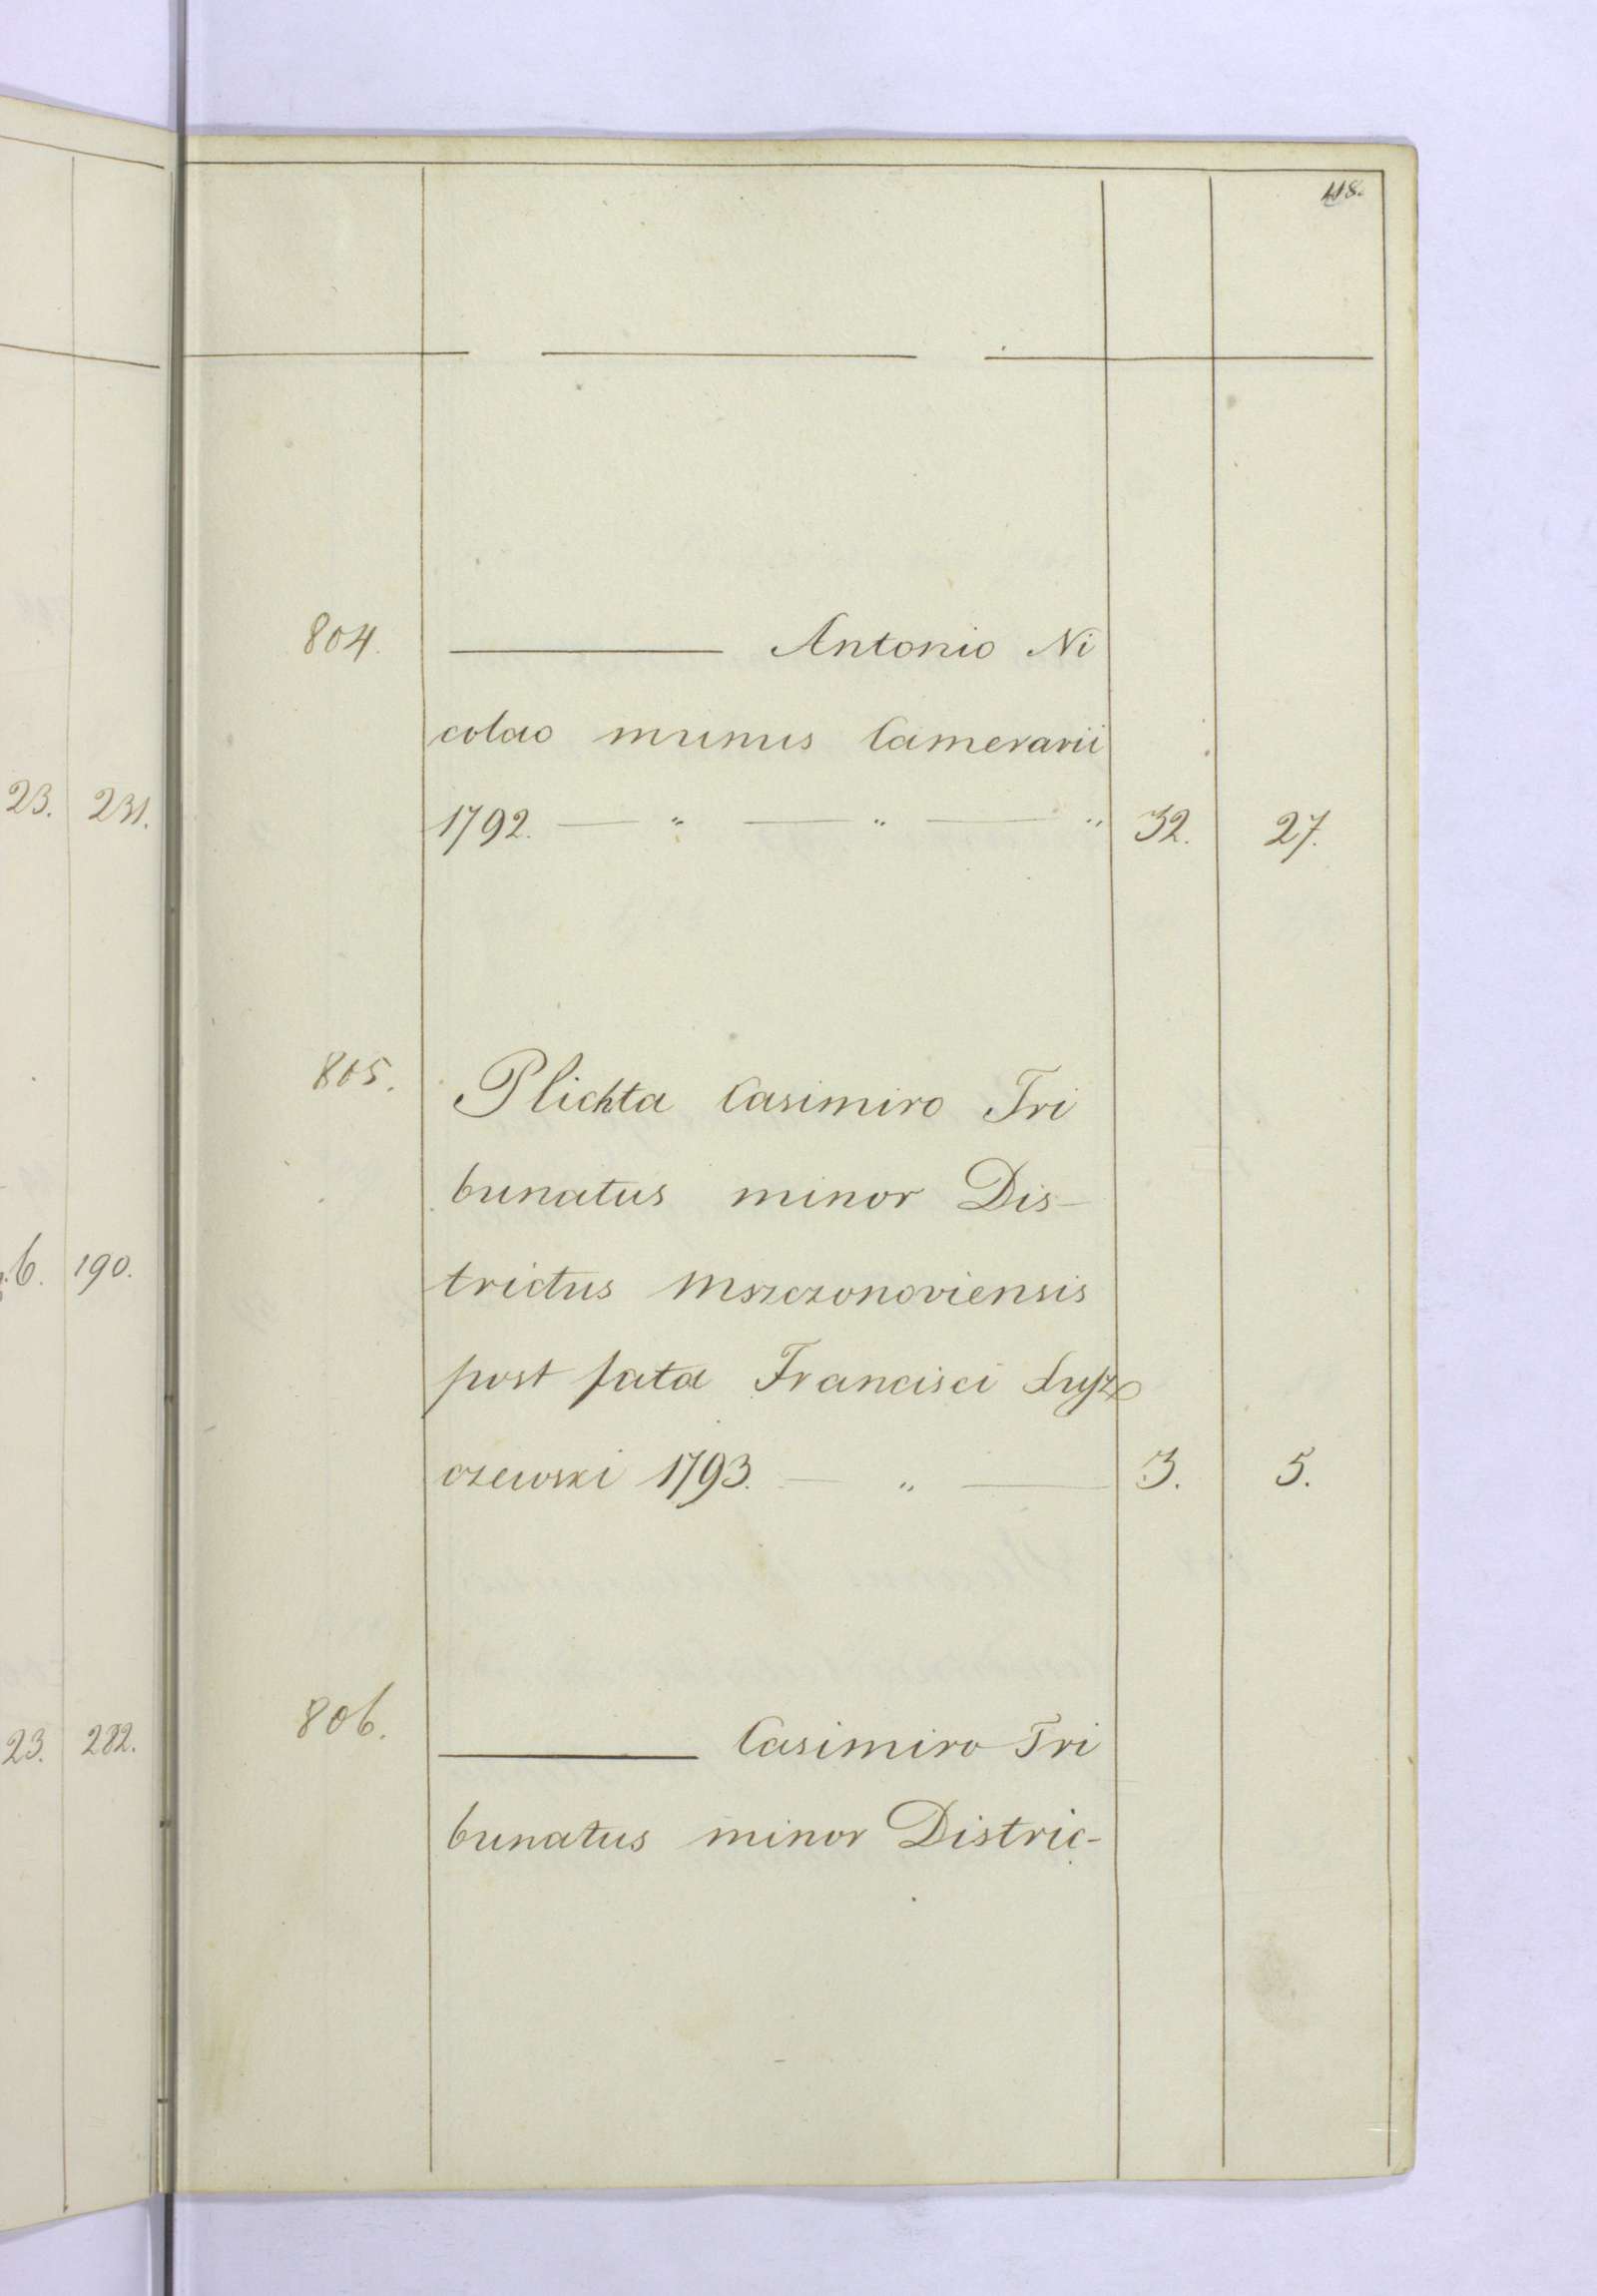 118.
804. ——— Antonio Ni
colao munus Camerarii
1792. — " — " — " 32. 27.
23. 231.
805. Plichta Casimiro Tri
bunatus minor Dis-
trictus Mszczonoviensis
6. 190.
post fata Francisci
czewski 1793. — " — 3. 5.
806. ——— Casimiro Tri
23. 282.
bunatus minor Distric-